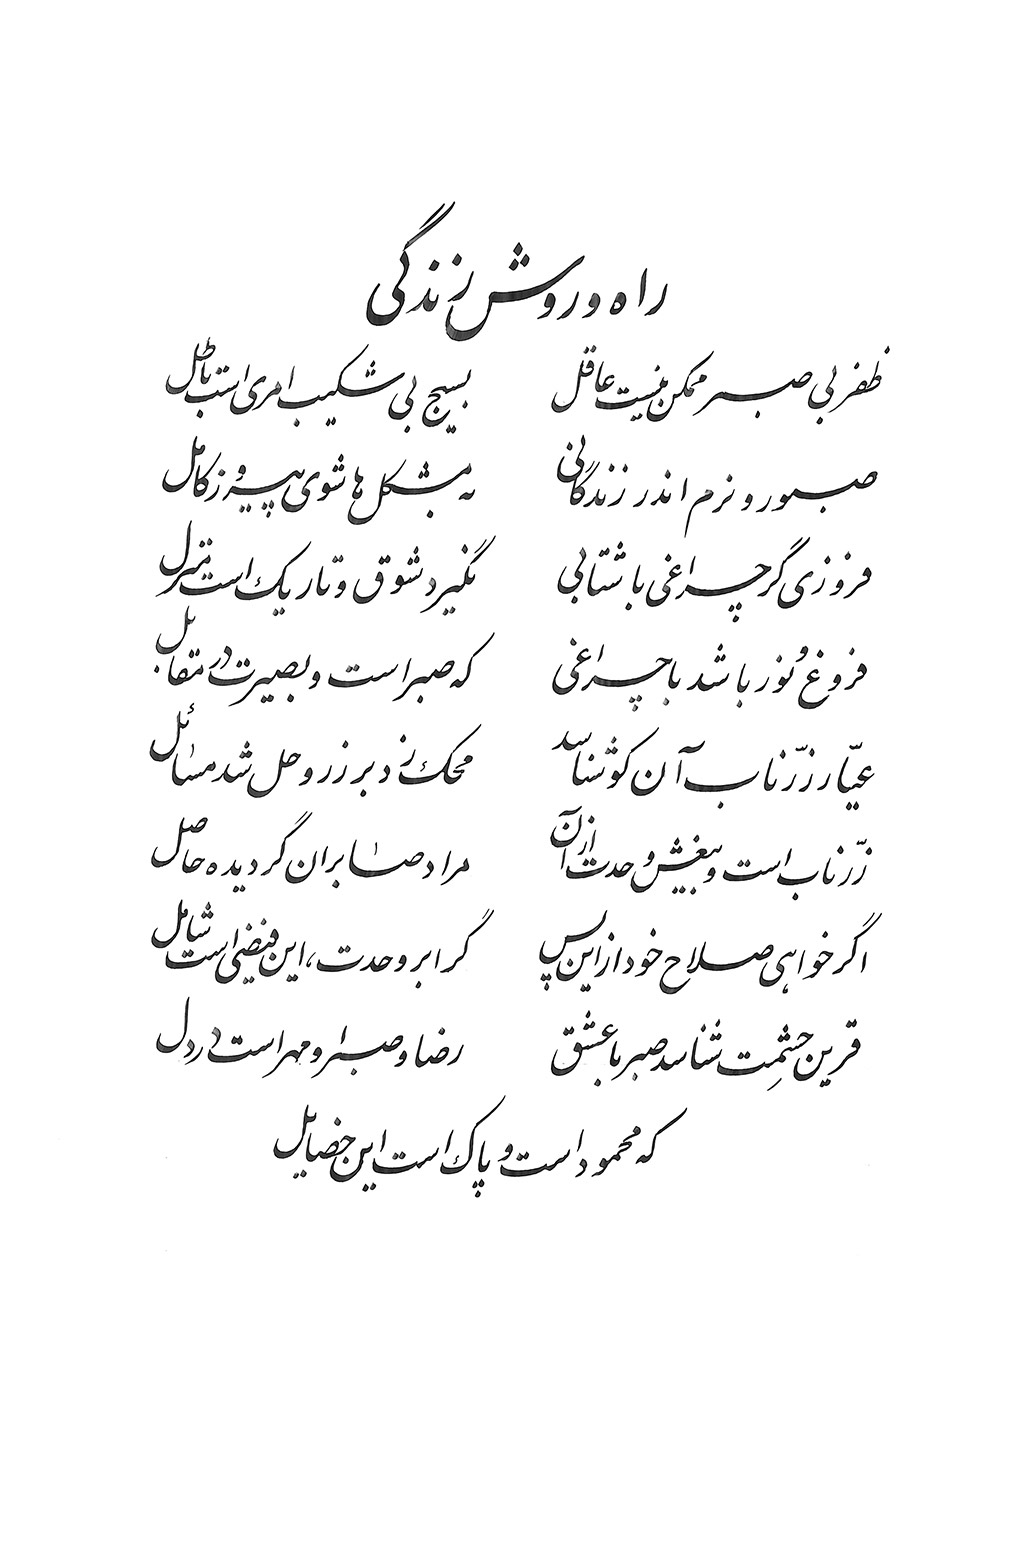 راه و روش زندگی
ظفر بی صبر ممکن نیست عاقل بسیج بی شکیب امری است باطل
صبور و نرم اندر زندگانی به مشکل ها شوی پیروز کامل
فروزی گر چراغی با شتابی نگیرد شوق و تاریک است منزل
فروغ و نور باشد با چراغی که صبر است و بصیرت در مقابل
عیّار زرّ ناب آن کو شناسد محک زد بر زر و حل شد مسائل
زرّ ناب است و بیغش وحدت از آن مراد صابران گردیده حاصل
اگر خواهی صلاح خود از این پس گرا بر وحدت، این فیضی است شامل
قرین حشمت شناسد صبر با عشق رضا و صبر و مهر است در دل
که محمود است و پاک است این خصایل